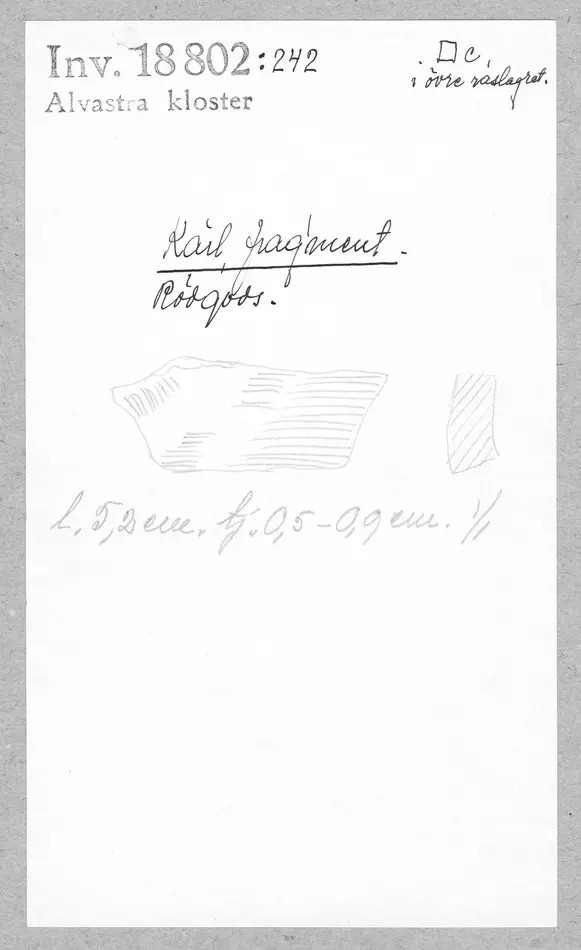 Inv. 18802:242
Alvastra kloster
□ C,
i övre raslagret.
Kärl, fragment.
Rödgods.
l. 5,2 cm. tj. 0,5–0,9 cm. 1/1